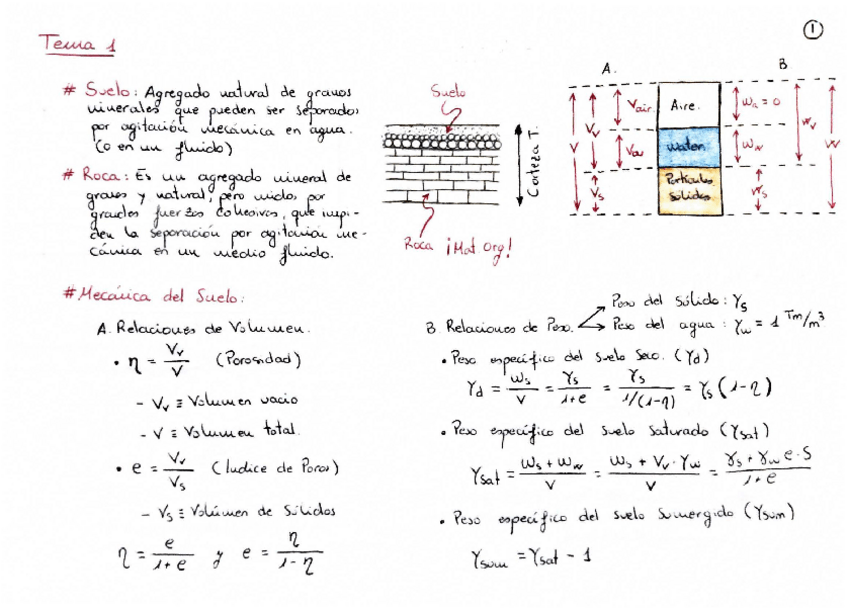 1
Tema 1
# Suelo: Agregado natural de granos
minerales que pueden ser separados
por agitación mecánica en agua.
(o en un fluido)
# Roca: Es un agregado mineral de
granos y natural, pero unidos por
grandes fuerzas cohesivas, que impi-
den la separación por agitación me-
cánica en un medio fluido.
Suelo
Corteza T.
Roca ¡Mat. Org!
A. B
V Vv Vair Aire. Wa = 0 Wv W
Vw water Ww
Vs Partículas Ws
sólidas
# Mecánica del Suelo:
A. Relaciones de Volumen.
• η = Vv/V (Porosidad)
- Vv ≡ Volumen vacio
- V ≡ Volumen total.
• e = Vv/Vs (Indice de Poros)
- Vs ≡ Volúmen de Sólidos
η = e/(1+e) y e = η/(1-η)
B. Relaciones de Peso.
Peso del sólido: γs
Peso del agua: γw = 1 Tm/m³
• Peso específico del suelo Seco. (γd)
γd = Ws/V = γs/(1+e) = γs/(1/(1-η)) = γs (1-η)
• Peso específico del suelo saturado (γsat)
γsat = (Ws + Ww)/V = (Ws + Vv · γw)/V = (γs + γw e · S)/(1+e)
• Peso específico del suelo sumergido (γsum)
γsum = γsat - 1